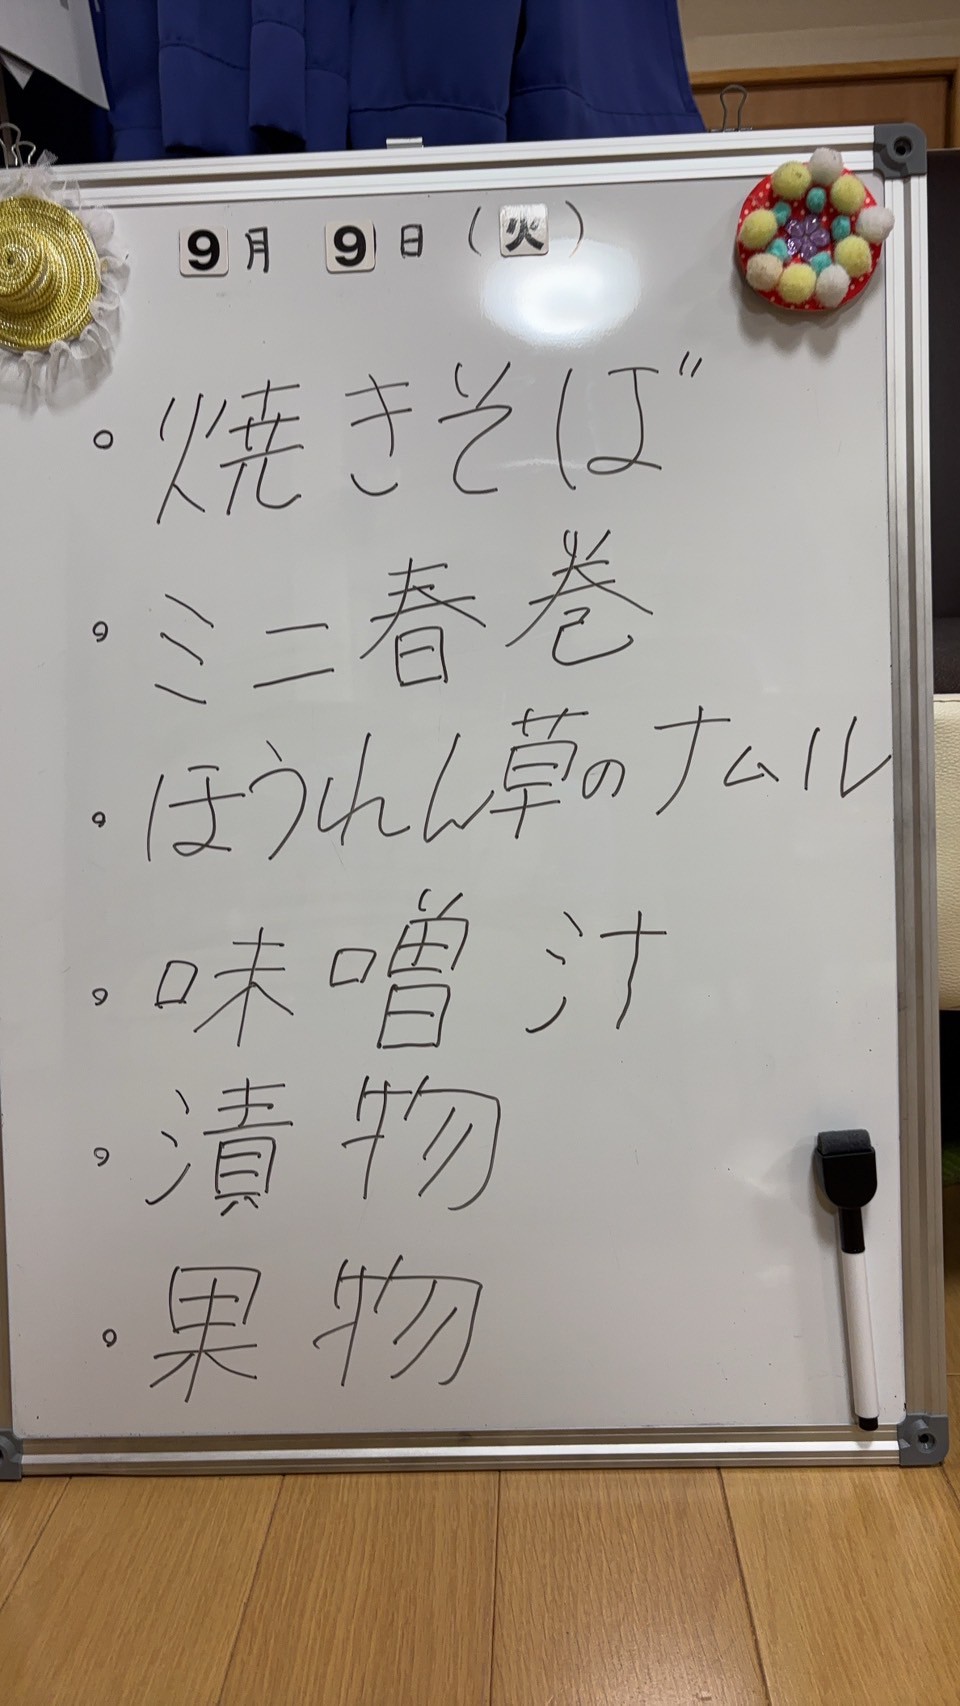 9月 9日 (火)
。焼きそば
。ミニ春巻
。ほうれん草のナムル
。味噌汁
。漬物
。果物